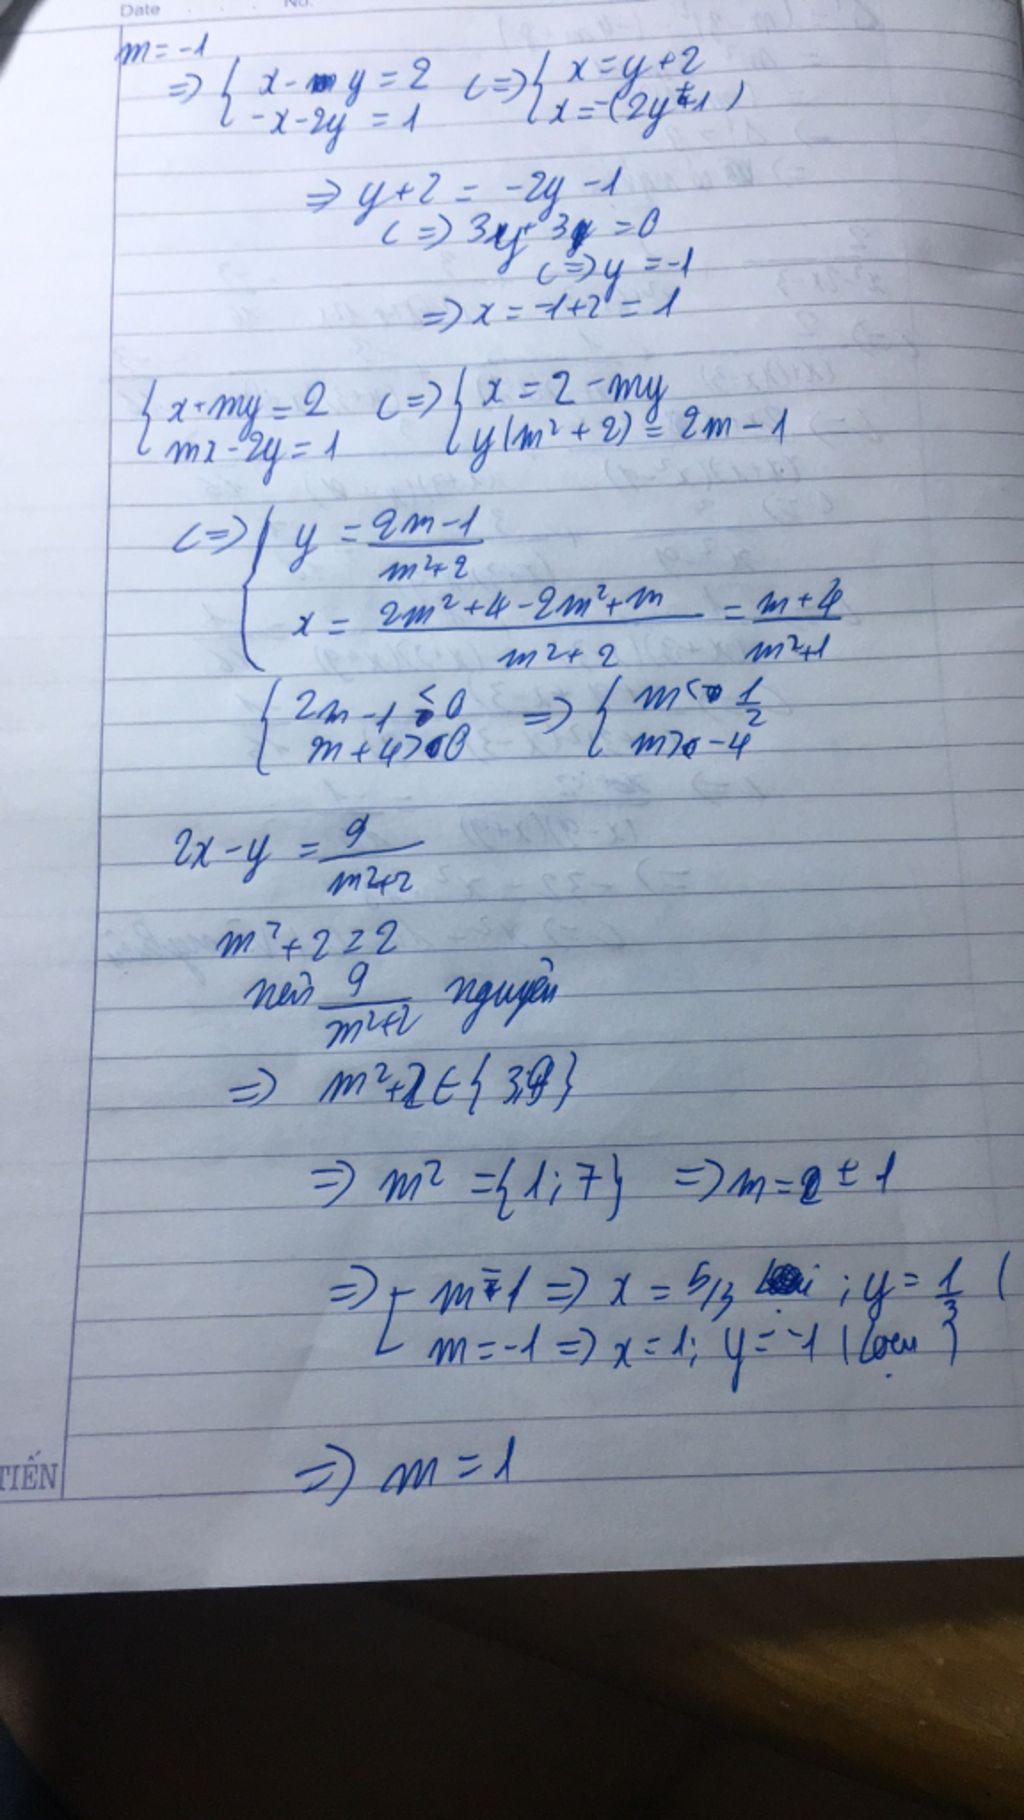 Date No.
m = -1
=> { x - y = 2 <=> { x = y + 2
-x - 2y = 1 x = -(2y + 1)
=> y + 2 = -2y - 1
<=> 3y + 3 = 0
<=> y = -1
=> x = -1 + 2 = 1
{ x + my = 2 <=> { x = 2 - my
mx - 2y = 1 y(m² + 2) = 2m - 1
<=> { y = (2m - 1)/(m² + 2)
x = (2m² + 4 - 2m² + m)/(m² + 2) = (m + 4)/(m² + 1)
{ 2m - 1 < 0 => { m < 1/2
m + 4 > 0 m > -4
2x - y = 9/(m² + 2)
m² + 2 ≥ 2
nên 9/(m² + 2) nguyên
=> m² + 2 ∈ {3; 9}
=> m² = {1; 7} => m = ± 1
=> [ m = 1 => x = 5/3 ; y = 1/3 (
m = -1 => x = 1; y = -1 (loại)
=> m = 1
TIẾN